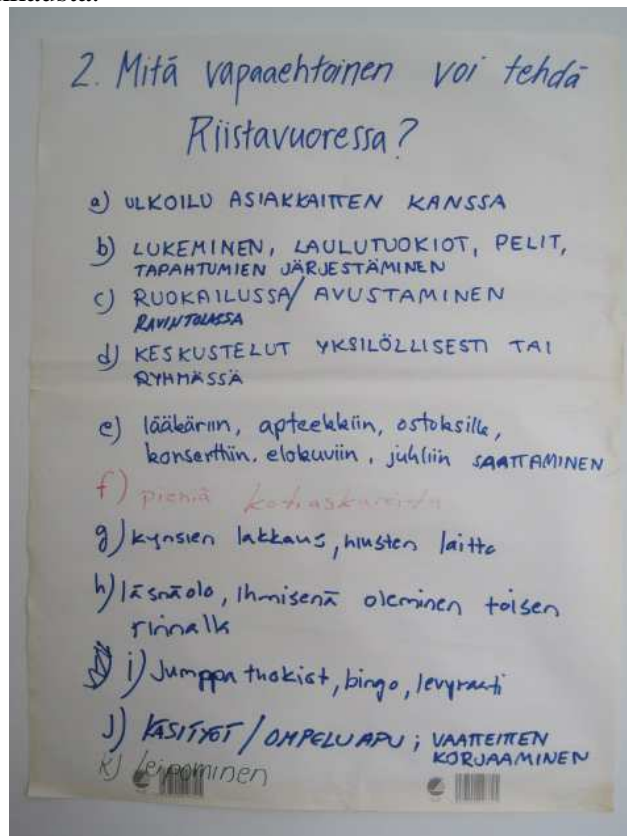 2. Mitä vapaaehtoinen voi tehdä
Riistavuoressa?
a) ULKOILU ASIAKKAITTEN KANSSA
b) LUKEMINEN, LAULUTUOKIOT, PELIT,
TAPAHTUMIEN JÄRJESTÄMINEN
c) RUOKAILUSSA/AVUSTAMINEN
RAVINTOLASSA
d) KESKUSTELUT YKSILÖLLISESTI TAI
RYHMÄSSÄ
e) lääkäriin, apteekkiin, ostoksille,
konserttiin, elokuviin, juhliin SAATTAMINEN
f) pieniä kotiaskareita
g) kynsien lakkaus, hiusten laitto
h) läsnäolo, Ihmisenä oleminen toisen
rinnalla
i) Jumppa tuokiot, bingo, levyraati
J) KÄSITYÖT / OMPELUAPU; VAATTEITTEN
KORJAAMINEN
K) leipominen